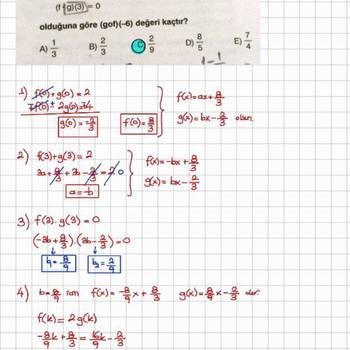 (f·g)(3) = 0
olduğuna göre (gof)(–6) değeri kaçtır?
A) 1/3 B) 2/3 2/9 D) 8/5 E) 7/4
1) f(0)+g(0)=2
g(0)=-2/3 f(0)=8/3
f(x)=ax+8/3
g(x)=bx-2/3 olsun.
2) f(3)+g(3)=2
3a+8/3+3b-2/3=2 0
a=-b
f(x)=-bx+8/3
g(x)=bx-2/3
3) f(3).g(3)=0
(-3b+8/3).(3b-2/3)=0
b1=8/9 b2=2/9
4) b=8/9 için f(x)=-8/9x+8/3 g(x)=8/9x-2/3 dır.
f(k)=2g(k)
-8k/9+8/3=16k/9-2/3